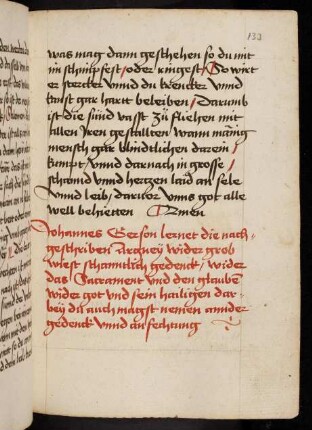 133
was mag dann geschehen so du mit
im schimpfest / oder ringest / So wirt
er stercker vnnd du krencker vnnd
kanst gar hartt beleiben / Darumb
ist die sünd vasst zu fliehen mit
allen Iren gestallten wann mänig
mensch gar blindtlichen darein
kumpt / vnnd darnach in grosse /
schannd vnnd hertzen laid an sele
vnnd leib / daruor vnns got alle
well behietten Amen
Johannes Gerson lernet die nach-
geschriben Artzney wider grob
wiest schamlich gedenck / wider
das Sacrament vnd den glauben
wider got vnd sein hailigen dar-
bey du auch magst nemen annder
gedenck vnnd anfechtung